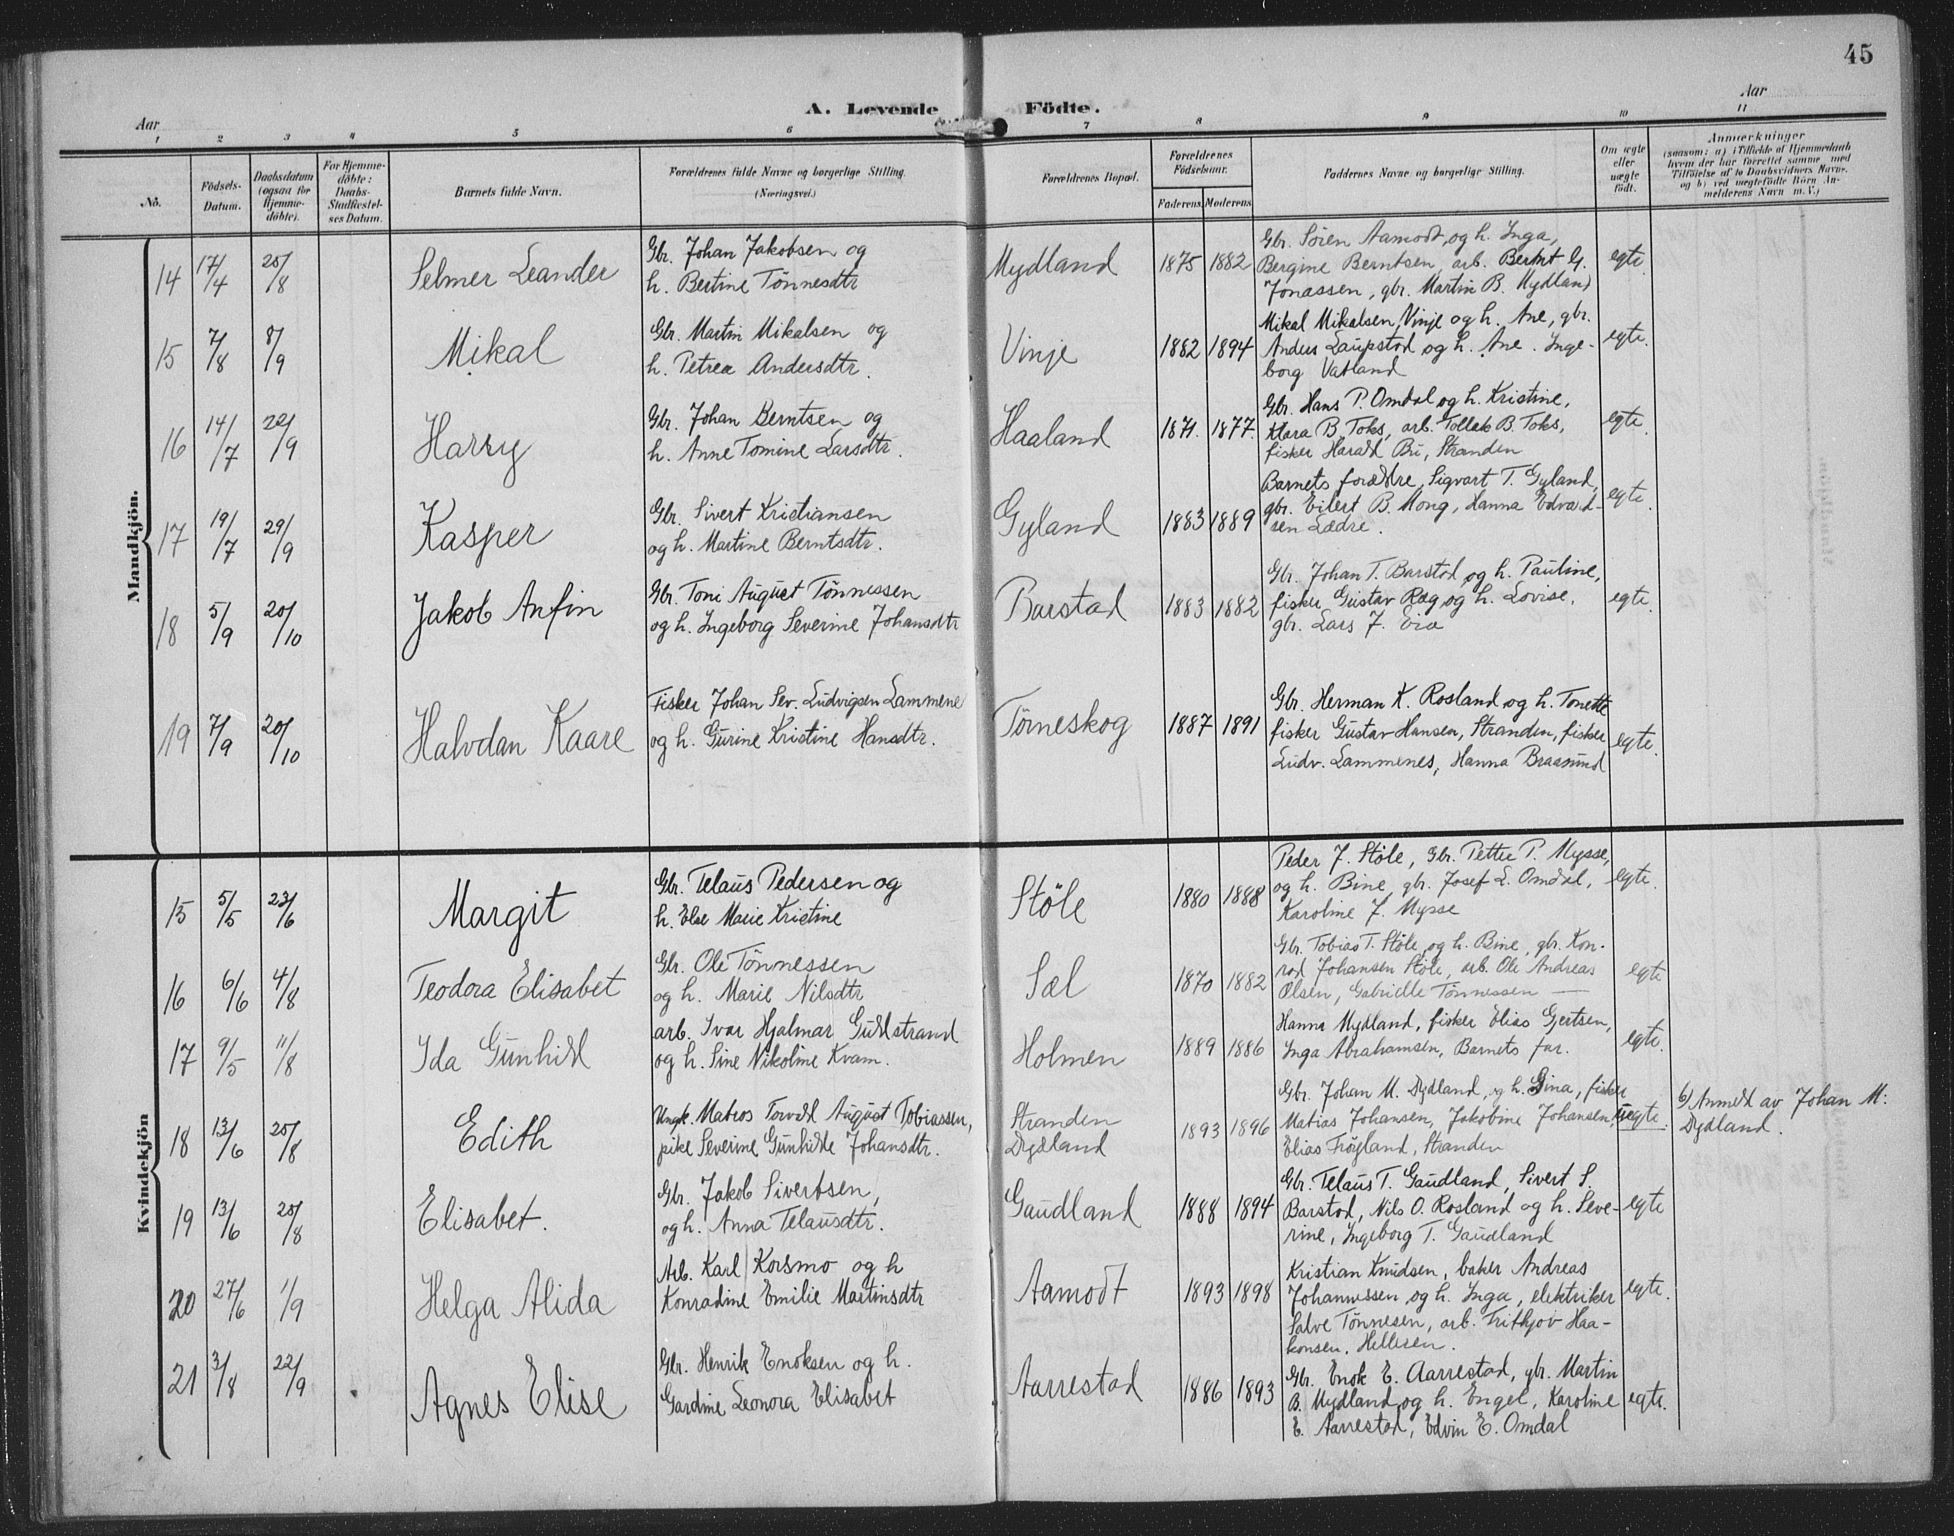 45
A. Levende Födte.
Aar
Aar
1 2 3 4 5 6 7 8 9 10 11
No.
Födsels-Datum.
Daabsdatum (ogsaa for Hjemme-döbte).
For Hjemme-döbte: Daabs-Stadfæstel-ses Datum.
Barnets fulde Navn.
Forældrenes fulde Navne og borgerlige Stilling.
(Næringsvei.)
Forældrenes Bopæl.
Forældrenes Födselsaar.
Faderens. Moderens.
Faddernes Navne og borgerlige Stilling.
Om ægte eller uægte födt.
Anmærkninger
(saasom: a) i Tilfælde af Hjemmedaab
hvem der har forrettet samme med
Tilföielse af to Daabsvidners Navne.
og b) ved uægtefödte Börn An-
melderens Navn m. V.)
Mandkjön.
14 17/4 20/8 Selmer Leander
Gbr. Johan Jakobsen og
h. Bertine Tönnesdtr
Mydland 1875 1882
Gbr. Sören Aamodt og h. Inga,
Bergine Berntsen, arb. Bernt G.
Jonassen, gbr. Martin B. Mydland
egte.
15 7/8 8/9 Mikal
Gbr. Martin Mikalsen og
h. Petrea Andersdtr.
Vinje 1882 1894
Mikal Mikalsen Vinje og h. Ane, gbr.
Anders Laupstad og h. Ane. Inge-
borg Vatland
egte.
16 14/7 22/9 Harry
Gbr. Johan Berntsen og
h. Anne Tomine Larsdtr.
Haaland 1871. 1877.
Gbr. Hans P. Omdal og h. Kristine,
Klara B. Toks, arb. Tollak B. Toks,
fisker Harald Bu, Stranden
egte.
17 19/7 29/9 Kasper
Gbr. Sivert Kristiansen
og h. Martine Berntsdtr.
Gyland 1883 1889
Barnets forældre, Sigvart T. Gyland,
gbr. Eilert B. Mong, Hanna Edvard-
sen Lædre.
egte.
18 5/9 20/10 Jakob Anfin
Gbr. Toni August Tönnessen
og h. Ingeborg Severine Johansdtr
Barstad 1883 1882
Gbr. Johan T. Barstad og h. Pauline,
fisker Gustav Ræg og h. Lovise,
gbr. Lars J. Eia
egte.
19 7/9 20/10 Halvdan Kaare
Fisker Johan Sev. Ludvigsen Lammene
og h. Gurine Kristine Hansdtr.
Törneskog 1887 1891
Gbr. Herman K. Rosland og h. Tonette
fisker Gustav Hansen, Stranden, fisker
Ludv. Lammenes, Hanna Braasund
egte.
Kvindekjön
15 5/5 23/6 Margit
Gbr. Telaus Pedersen og
h. Else Marie Kristine
Stöle 1880 1888
Peder J. Stöle, Gbr. Petter P. Mysse,
og h. Bine, gbr. Josef L. Omdal,
Karoline J. Mysse
egte.
16 6/6 4/8 Teodora Elisabet
Gbr. Ole Tönnessen
og h. Marie Nilsdtr
Sæl 1870 1882
Gbr. Tobias T. Stöle og h. Bine, gbr. Kon-
rad Johansen Stöle, arb. Ole Andreas
Olsen, Gabrielle Tönnessen
egte
17 9/5 11/8 Ida Gunhild
arb. Ivar Hjalmar Guldstrand
og h. Sine Nikoline Kvam.
Holmen 1889 1886
Hanna Mydland, fisker Elias Gjertsen,
Inga Abrahamsen, Barnets far.
egte.
18 13/6 20/8 Edith
Ungk. Matros Torvald August Tobiassen,
pike Severine Gunhilde Johansdtr.
Stranden
Dydland
1893 1896
Gbr. Johan M. Dydland, og h. Gina, fisker
Matias Johansen, Jakobine Johansen,
Elias Fröyland, Stranden
uegte.
b) Anmeldt av Johan M.
Dydland.
19 13/6 20/8 Elisabet.
Gbr. Jakob Sivertsen,
og h. Anna Telausdtr.
Gaudland 1888 1894
Gbr. Telaus T. Gaudland, Sivert S.
Barstad, Nils O. Rosland og h. Seve-
rine, Ingeborg T. Gaudland
egte
20 27/6 1/9 Helga Alida
Arb. Karl Korsmo og h
Konradine Emilie Martinsdtr
Aamodt 1893 1898
Kristian Knudsen, baker Andreas
Johannessen og h. Inga, elektriker
Salve Tönnesen, arb. Fritjov Haa-
konsen, Hellesen.
egte.
21 3/8 22/9 Agnes Elise
Gbr. Henrik Enoksen og h.
Gardine Leonora Elisabet
Aarrestad 1886 1893
Gbr. Enok E. Aarrestad, gbr. Martin
B. Mydland og h. Engel, Karoline
E. Aarrestad, Edvin E. Omdal
egte.